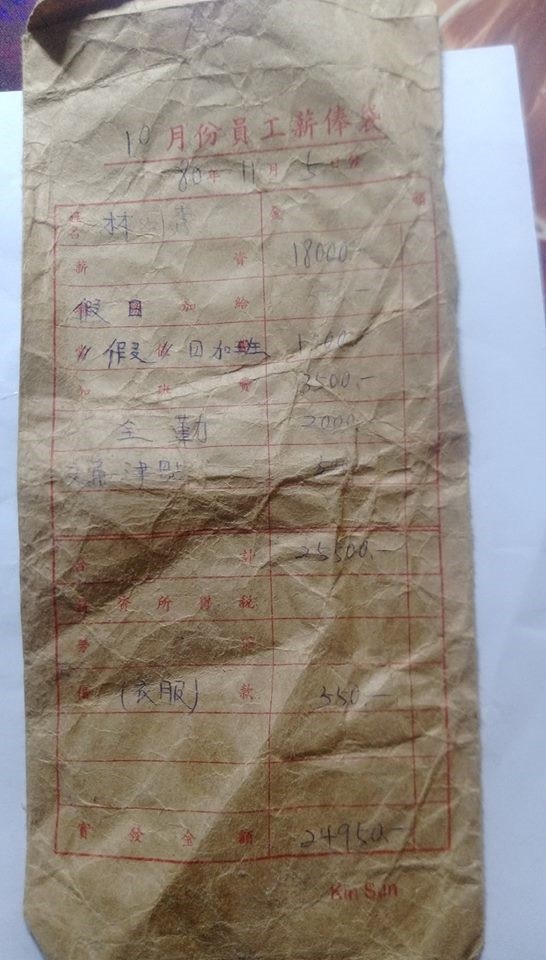 10月份員工薪俸袋
80年11月5日份
姓名 林 金額
薪資 18000.-
假日加給
假日加班
加班費 3500.-
全勤 2000
津貼
合計 25500.-
薪資所得稅
勞
借(衣服)款 550.-
實發金額 24950.-
Kin Sun